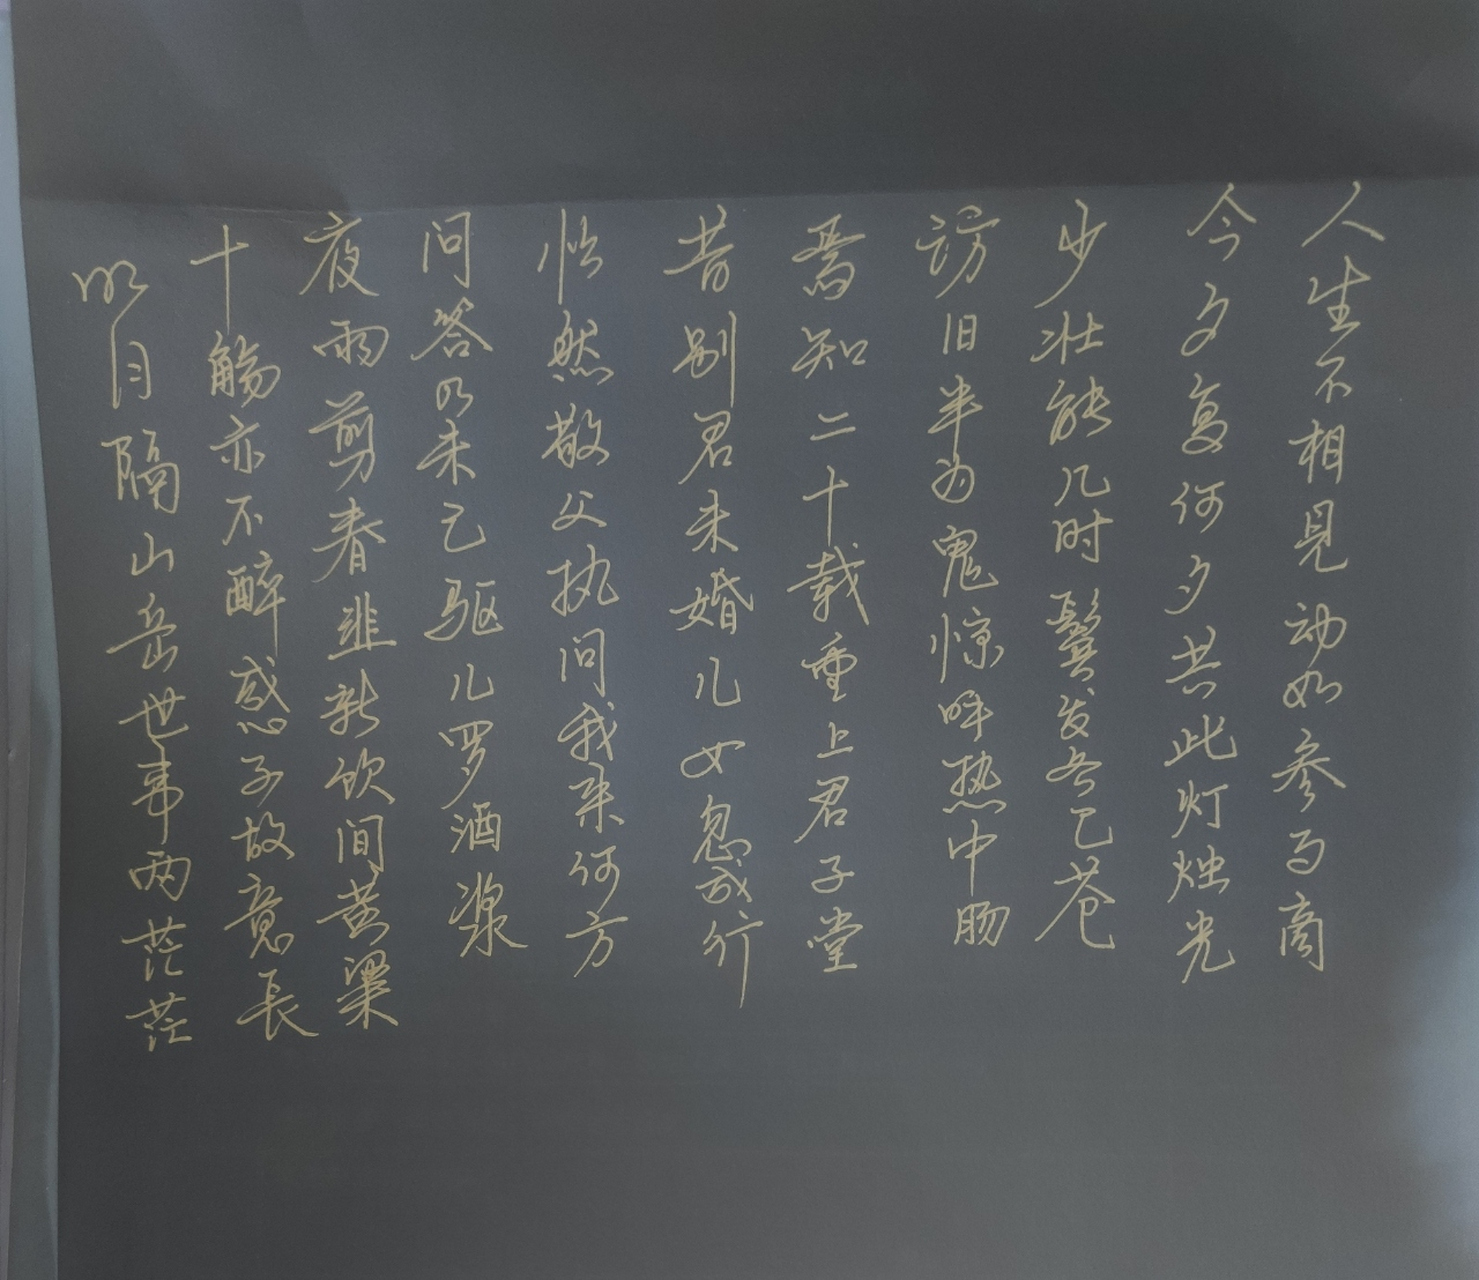 人生不相见动如参与商
今夕复何夕共此灯烛光
少壮能几时鬓发各已苍
访旧半为鬼惊呼热中肠
焉知二十载重上君子堂
昔别君未婚儿女忽成行
怡然敬父执问我来何方
问答乃未已驱儿罗酒浆
夜雨剪春韭新饮间黄粱
十觞亦不醉感子故意長
明日隔山岳世事两茫茫